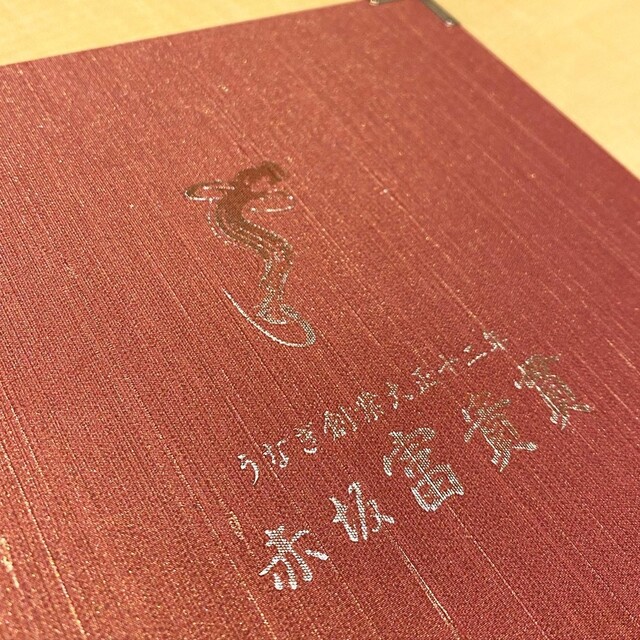 うなぎ創業大正十二年
赤坂富貴貫